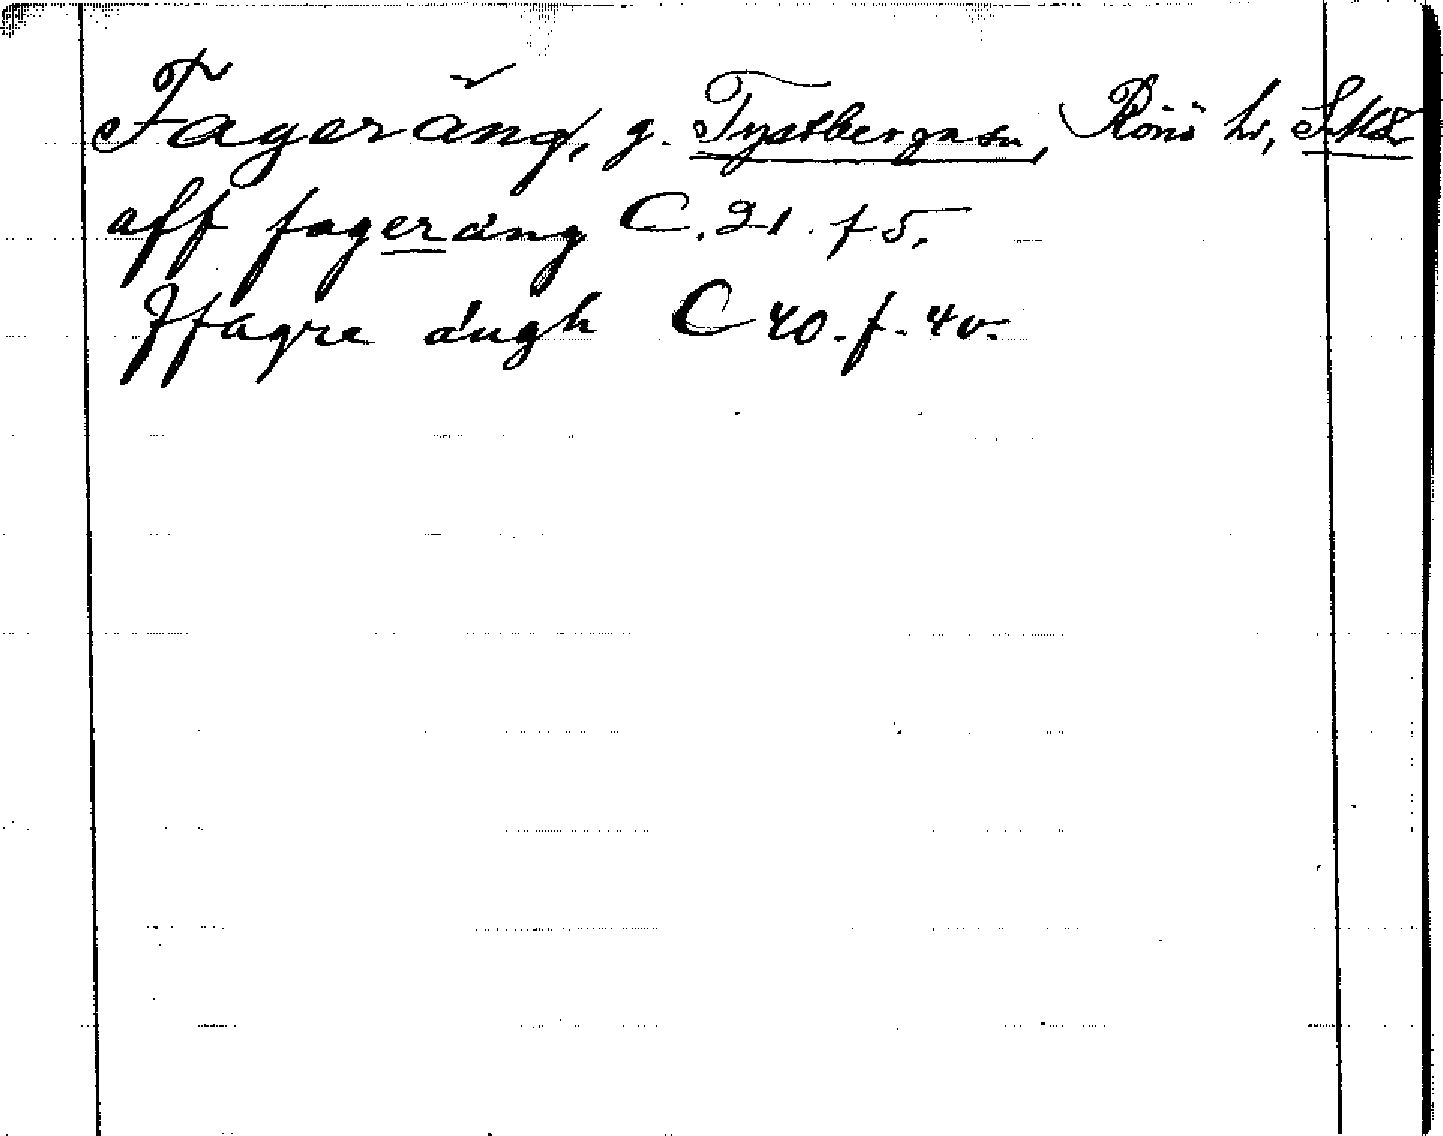 Fageräng, g. Tystberga sn, Rönö hd, Smld
aff fageräng C. 21. f 5.
Ffagre ängh C 40. f. 40.